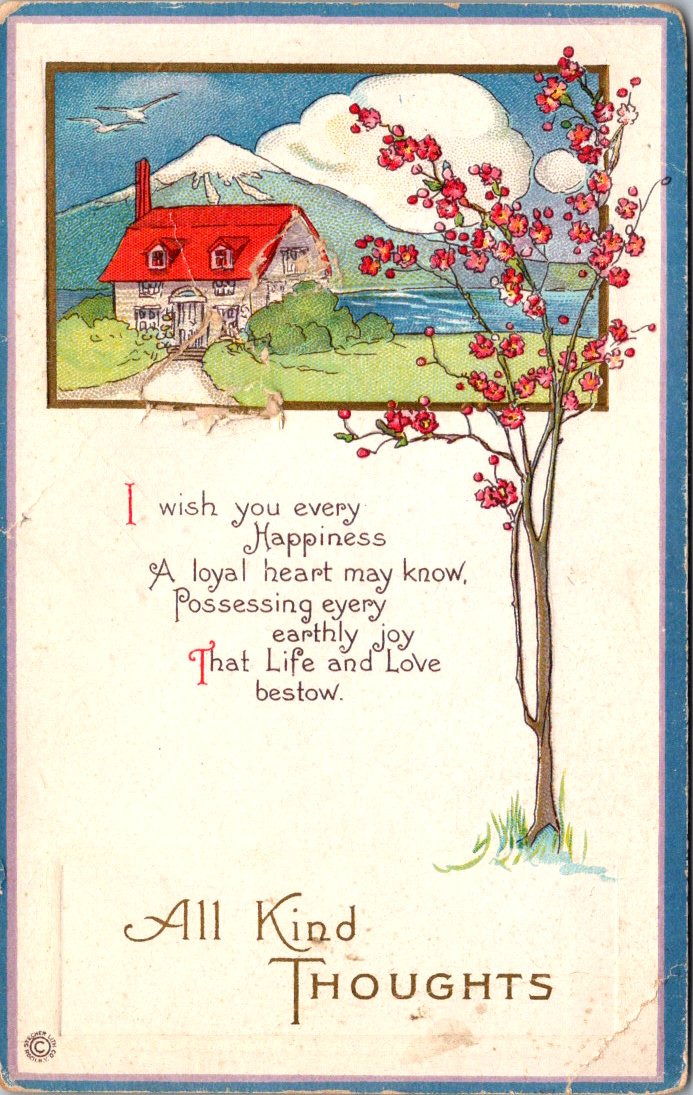 I wish you every
Happiness
A loyal heart may know,
Possessing eyery
earthly joy
That Life and Love
bestow.
All Kind
THOUGHTS
STECHER LITH CO.
ROCH. N.Y.
©